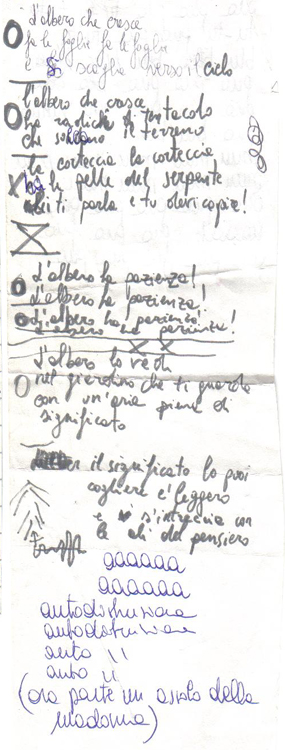 L'albero che cresce
fa le foglie fa le foglie
e si scaglia verso il cielo
l'albero che cresce
ha radici di tentacolo
che solcano il terreno
la corteccia la corteccia
ha la pelle del serpente
ti parla e tu devi capire!
L'albero ha pazienza!
L'albero ha pazienza!
L'albero ha pazienza!
L'albero ha pazienza!
L'albero lo vedi
nel giardino che ti guarda
con un'aria piena di
significato
il significato lo puoi
cogliere e' leggero
e s'intreccia con
le ali del pensiero
aaaaaa
aaaaaa
autodistruzione
autodistruzione
auto II
auto II
(ora parte un assolo della
madonna)